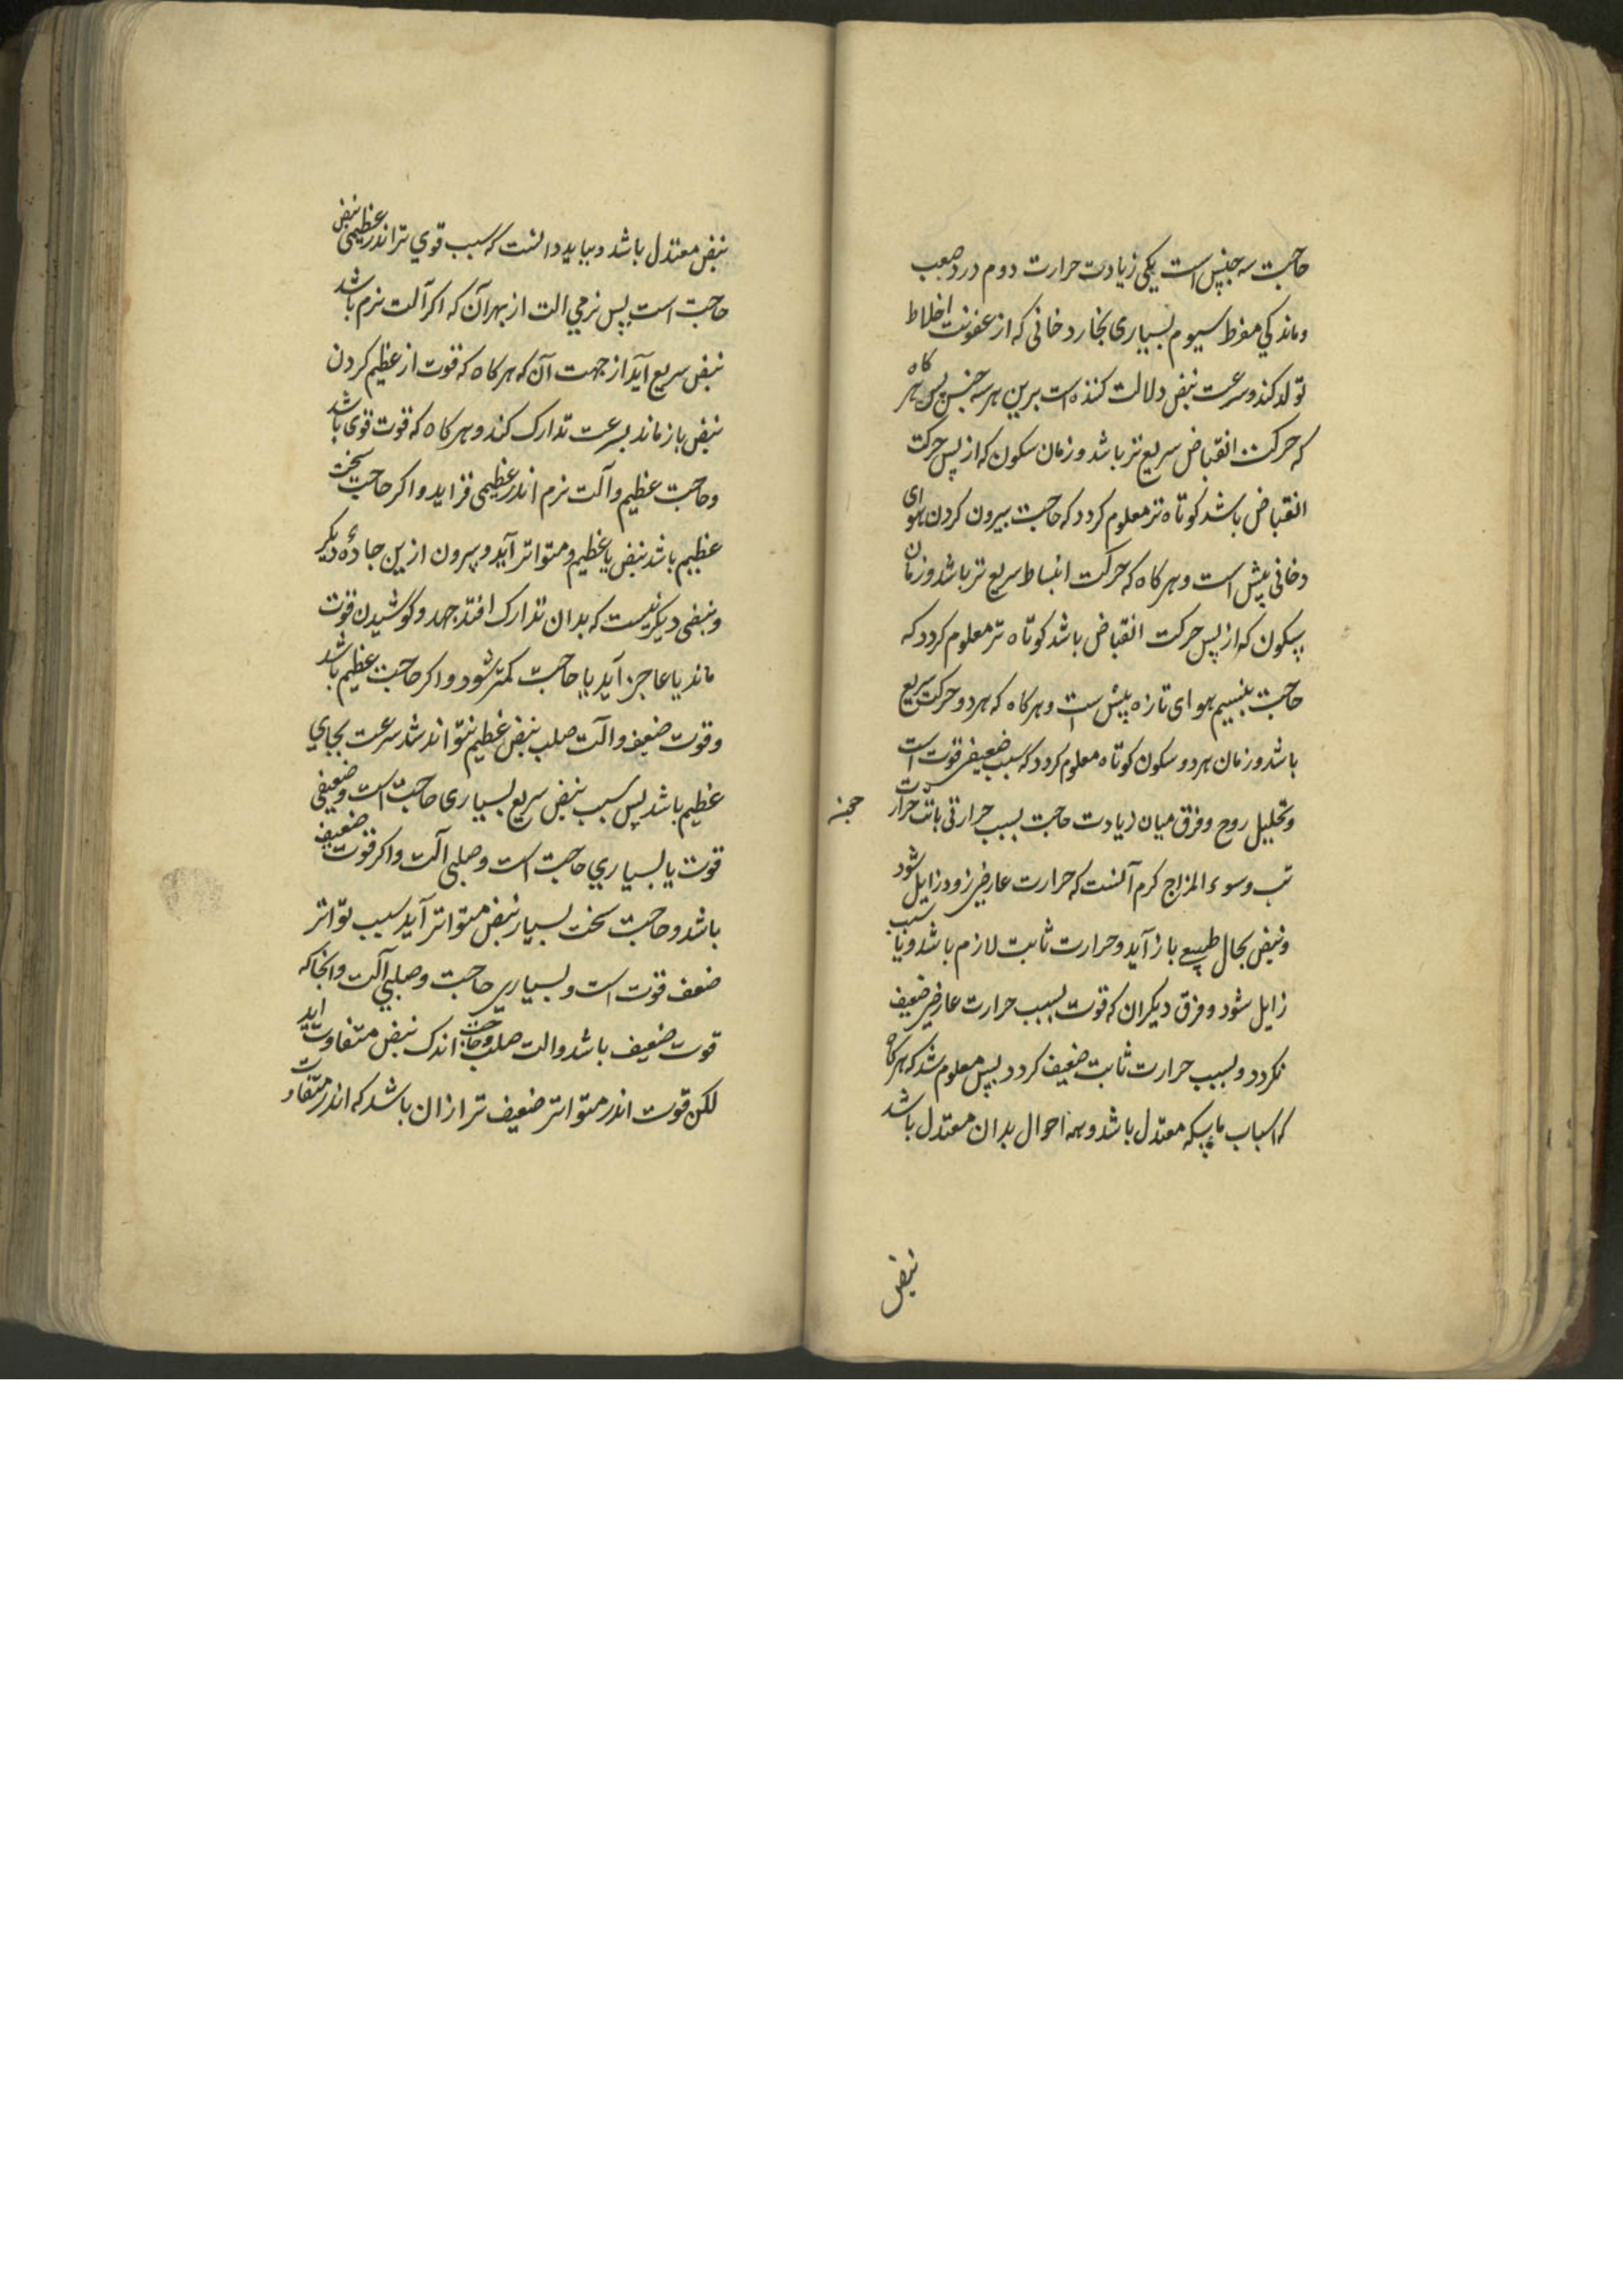 حاجت سه جنس است یکی زیادت حرارت دوم درد صعب
وماندکی مفرط سیوم بسیاری بخار دخانی که از عفونت اخلاط
تولد کند وسرعت نبض دلالت کننده است برین هر سه جنس پس هر کاه
که حرکت انقباض سریع تر باشد وزمان سکون که از پس حرکت
انقباض باشد کوتاه تر معلوم کردد که حاجت بیرون کردن هوای
دخانی بیش است وهر کاه که حرکت انبساط سریع تر باشد وزمان
سکون که از پس حرکت انقباض باشد کوتاه تر معلوم کردد که
حاجت بنسیم هوای تازه بیش است وهر کاه که هر دو حرکت سریع
باشد وزمان هر دو سکون کوتاه معلوم کردد که سبب ضعیفی قوت است
وتحلیل روح وفرق میان زیادت حاجت بسبب حرارتی حرارت
تب وسوء المزاج کرم آنست که حرارت عارضی زود زایل شود
ونبض بحال طبیعی باز آید وحرارت ثابت لازم باشد وبا سبب
زایل شود وفرق دیکر ان که قوت بسبب حرارت عارضی ضعیف
نکردد وبسبب حرارت ثابت ضعیف کردد پس معلوم شد که هر کاه
که اسباب ماسکه معتدل باشد وهمه احوال بدان معتدل باشد
نبض
نبض معتدل باشد وبباید دانست که سبب قوی تر اندر عظیمی نبض
حاجت است پس نرمی الت از بهر آن که اکر آلت نرم باشد
نبض سریع آید از جهت آن که هر کاه که قوت از عظیم کردن
نبض باز ماند بسرعت تدارک کند وهر کاه که قوت قوی باشد
وحاجت عظیم وآلت نرم اندر عظیمی فزاید واکر حاجت سخت
عظیم باشد نبض یا عظیم ومتواتر آید وبیرون ازین جاده دیکر
ونبضی دیکر نیست که بدان تدارک افتد جهد وکوشیدن قوت
ماند یا عاجز آید یا حاجت کمتر شود واکر حاجت عظیم باشد
وقوت ضعیف وآلت صلب نبض عظیم نتواند شد سرعت بجای
عظیم باشد پس سبب نبض سریع بسیاری حاجت است وضعیفی
قوت یا بسیاری حاجت است وصلبی آلت واکر قوت ضعیف
باشد وحاجت سخت بسیار نبض متواتر آید سبب تواتر
ضعف قوت است وبسیاری حاجت وصلبی آلت وانجاکه
قوت ضعیف باشد والت صلب وحاجت اندک نبض متفاوت اید
لکن قوت اندر متواتر ضعیف تر ازان باشد که اندر متفاوت